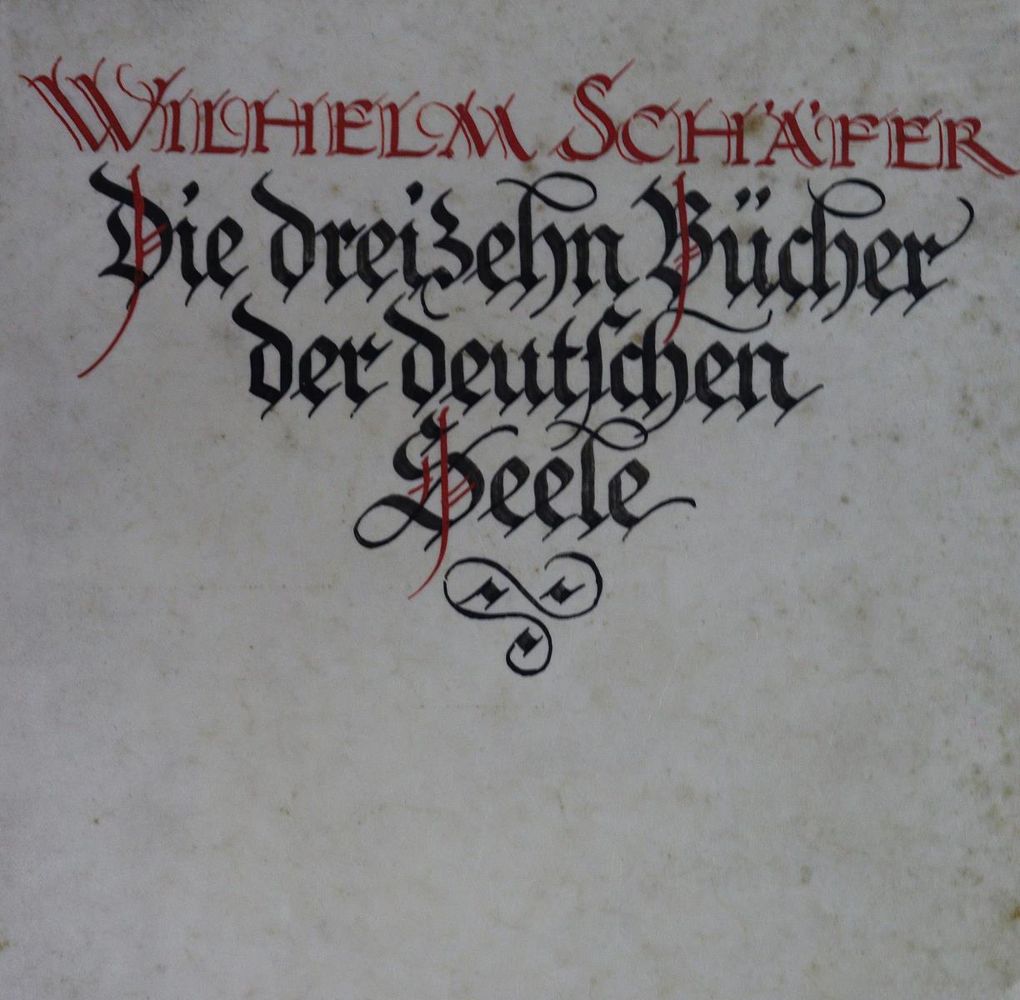 WILHELM SCHÄFER
Die dreizehn Bücher
der deutſchen
Seele